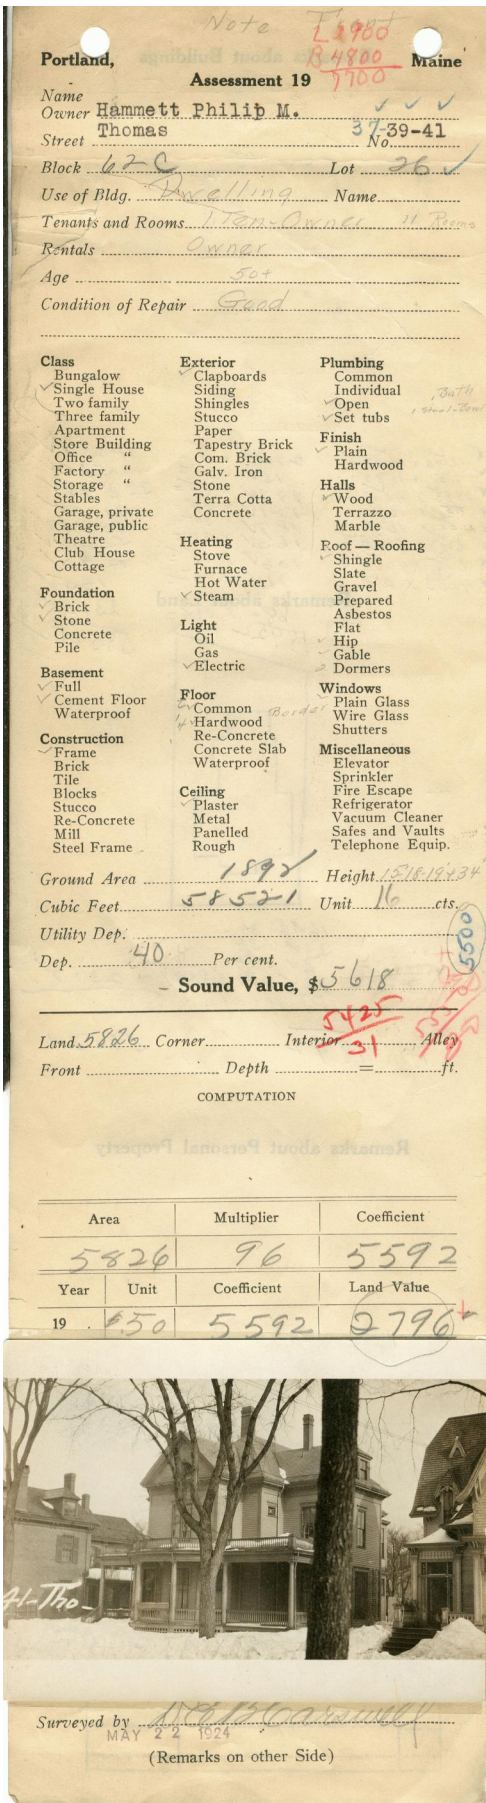 Note Front
L 2900
B 4800
7700
Portland, Maine
Assessment 19
Name
Owner Hammett Philip M.
Street Thomas No. 37-39-41
Block 62C Lot 26
Use of Bldg. Dwelling Name
Tenants and Rooms 1 Ten-Owner 11 Rooms
Rentals Owner
Age 50+
Condition of Repair Good
Class
Bungalow
Single House
Two family
Three family
Apartment
Store Building
Office "
Factory "
Storage "
Stables
Garage, private
Garage, public
Theatre
Club House
Cottage
Foundation
Brick
Stone
Concrete
Pile
Basement
Full
Cement Floor
Waterproof
Construction
Frame
Brick
Tile
Blocks
Stucco
Re-Concrete
Mill
Steel Frame
Exterior
Clapboards
Siding
Shingles
Stucco
Paper
Tapestry Brick
Com. Brick
Galv. Iron
Stone
Terra Cotta
Concrete
Heating
Stove
Furnace
Hot Water
Steam
Light
Oil
Gas
Electric
Floor
Common
Hardwood Border
Re-Concrete
Concrete Slab
Waterproof
Ceiling
Plaster
Metal
Panelled
Rough
Plumbing
Common
Individual 1 Bath
Open
Set tubs
Finish
Plain
Hardwood
Halls
Wood
Terrazzo
Marble
Roof — Roofing
Shingle
Slate
Gravel
Prepared
Asbestos
Flat
Hip
Gable
Dormers
Windows
Plain Glass
Wire Glass
Shutters
Miscellaneous
Elevator
Sprinkler
Fire Escape
Refrigerator
Vacuum Cleaner
Safes and Vaults
Telephone Equip.
Ground Area 1892 Height 15-18-19+34
Cubic Feet 58521 Unit 16 cts.
Utility Dep.
5500
Dep. 40 Per cent.
Sound Value, $ 5618
5425
31
Land 5826 Corner Interior Alley
Front Depth = ft.
COMPUTATION
Area Multiplier Coefficient
5826 96 5592
Year Unit Coefficient Land Value
19 $.50 5592 2796
41-Tho-
Surveyed by Carswell
MAY 22 1924
(Remarks on other Side)